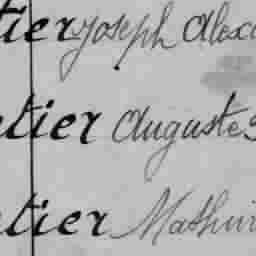 tier Joseph Alex
tier Auguste
tier Mathuri